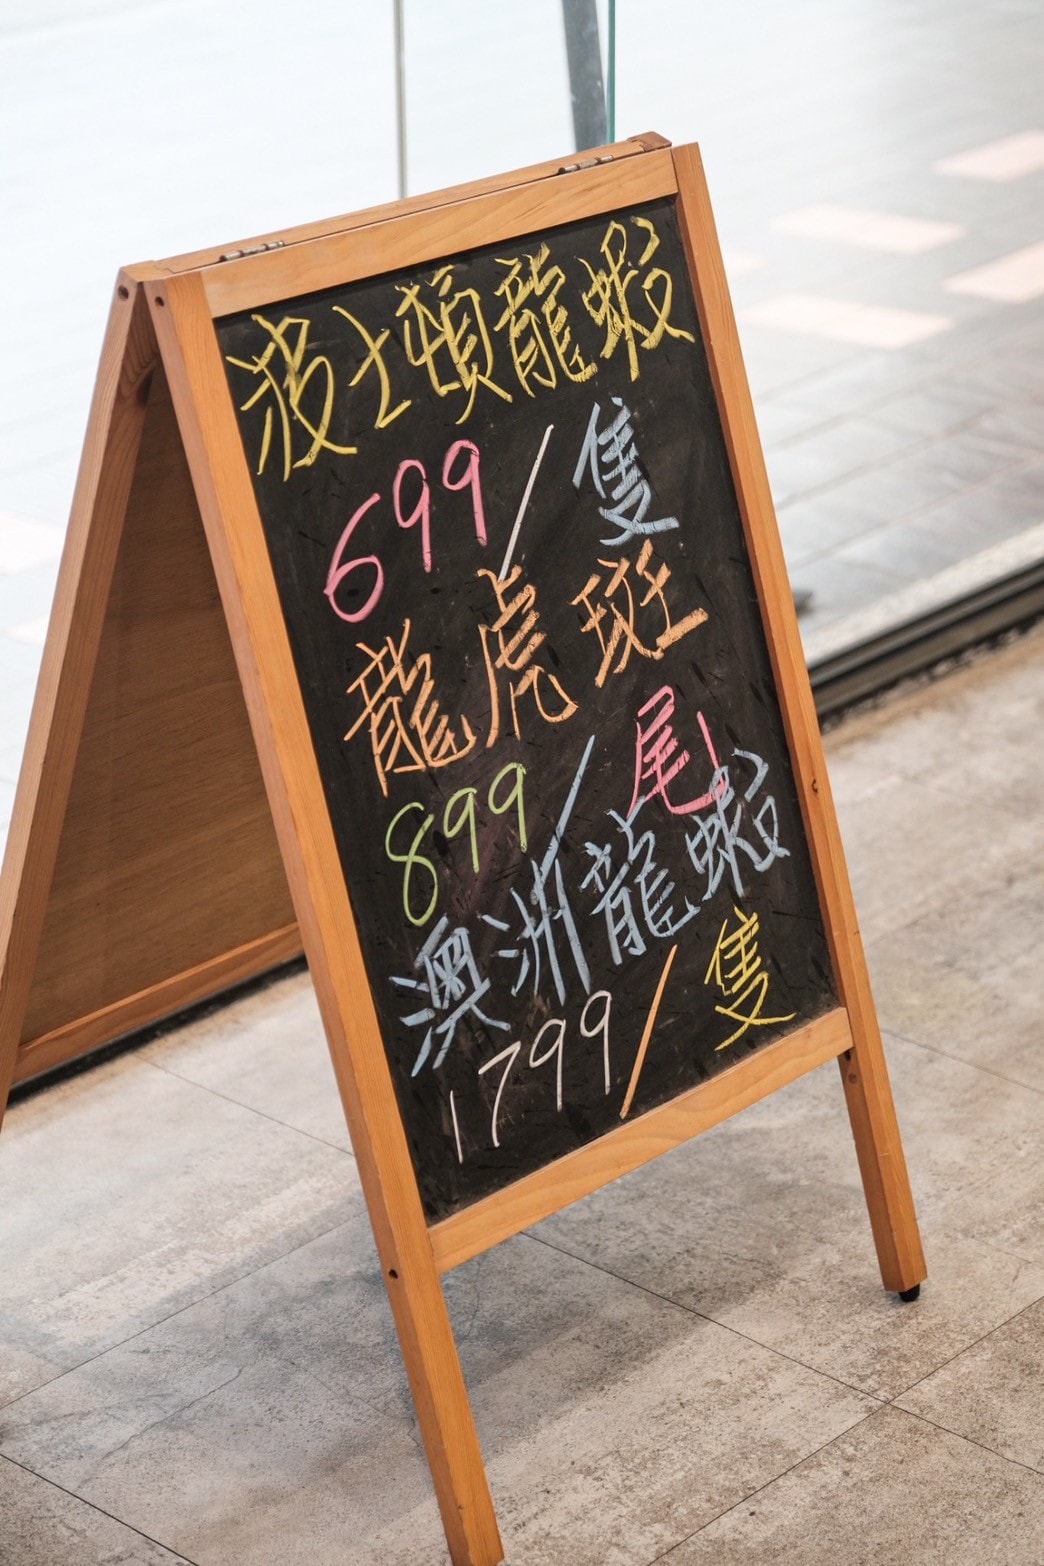 波士頓龍蝦
699/隻
龍虎斑
899/尾
澳洲龍蝦
1799/隻